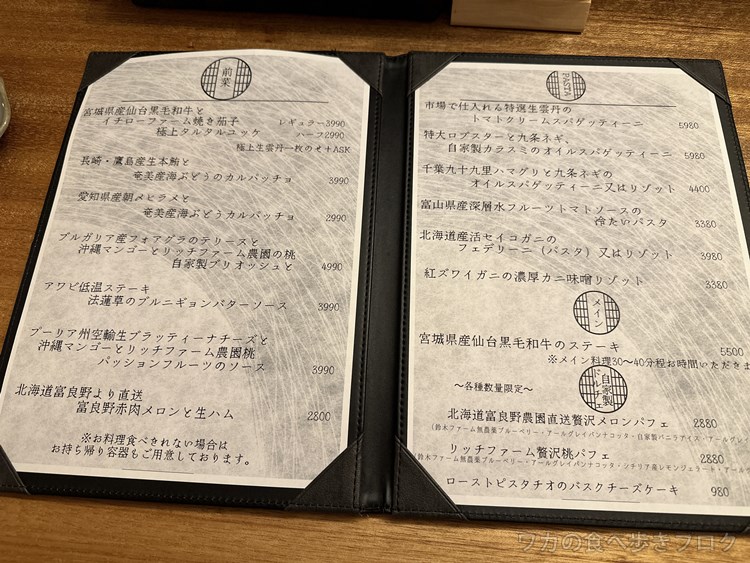 前菜
宮城県産仙台黒毛和牛と
イチローファーム焼き茄子 レギュラー3990
極上タルタルユッケ ハーフ2990
極上生雲丹一枚のせ+ASK
長崎・鷹島産生本鮪と
奄美産海ぶどうのカルパッチョ 3990
愛知県産朝〆ヒラメと
奄美産海ぶどうカルパッチョ 2990
ブルガリア産フォアグラのテリーヌと
沖縄マンゴーとリッチファーム農園の桃
自家製ブリオッシュと 4990
アワビ低温ステーキ
法蓮草のブルニギョンバターソース 3990
プーリア州空輸生ブラッティーナチーズと
沖縄マンゴーとリッチファーム農園桃
パッションフルーツのソース 3990
北海道富良野より直送
富良野赤肉メロンと生ハム 2800
※お料理食べきれない場合は
お持ち帰り容器もご用意しております。
PASTA
市場で仕入れる特選生雲丹の
トマトクリームスパゲッティーニ 5980
特大ロブスターと九条ネギ、
自家製カラスミのオイルスパゲッティーニ 5980
千葉九十九里ハマグリと九条ネギの
オイルスパゲッティーニ又はリゾット 4400
富山県産深層水フルーツトマトソースの
冷たいパスタ 3380
北海道産活セイコガニの
フェデリーニ（パスタ）又はリゾット 3980
紅ズワイガニの濃厚カニ味噌リゾット 3380
メイン
宮城県産仙台黒毛和牛のステーキ 5500
※メイン料理30～40分程お時間いただきま
自家製
ドルチェ
～各種数量限定～
北海道富良野農園直送贅沢メロンパフェ 2880
(鈴木ファーム無農薬ブルーベリー・アールグレイパンナコッタ・自家製バニラアイス・アールグレ
リッチファーム贅沢桃パフェ 2880
(鈴木ファーム無農薬ブルーベリー・アールグレイパンナコッタ・シチリア産レモンジェラード・アール
ローストピスタチオのバスクチーズケーキ 980
ワカの食べ歩きブログ